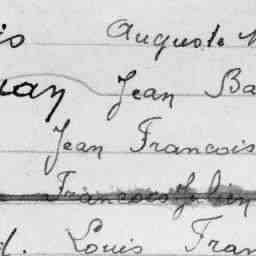 is Auguste
uay Jean Ba
Jean Francois
Francois Julin
d. Louis Fran